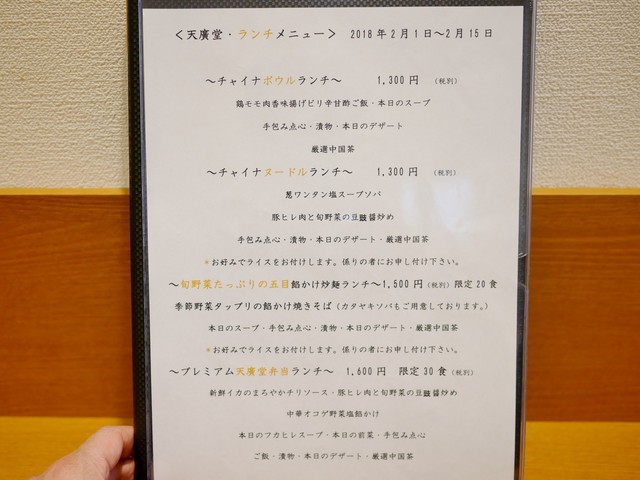 ＜天廣堂・ランチメニュー＞ 2018年2月1日〜2月15日
〜チャイナボウルランチ〜 1,300円 (税別)
鶏モモ肉香味揚げピリ辛甘酢ご飯・本日のスープ
手包み点心・漬物・本日のデザート
厳選中国茶
〜チャイナヌードルランチ〜 1,300円 (税別)
葱ワンタン塩スープソバ
豚ヒレ肉と旬野菜の豆鼓醤炒め
手包み点心・漬物・本日のデザート・厳選中国茶
＊お好みでライスをお付けします。係りの者にお申し付け下さい。
〜旬野菜たっぷりの五目餡かけ炒麺ランチ〜1,500円(税別) 限定20食
季節野菜タップリの餡かけ焼きそば(カタヤキソバもご用意しております。)
本日のスープ・手包み点心・漬物・本日のデザート・厳選中国茶
＊お好みでライスをお付けします。係りの者にお申し付け下さい。
〜プレミアム天廣堂弁当ランチ〜 1,600円 限定30食(税別)
新鮮イカのまろやかチリソース・豚ヒレ肉と旬野菜の豆鼓醤炒め
中華オコゲ野菜塩餡かけ
本日のフカヒレスープ・本日の前菜・手包み点心
ご飯・漬物・本日のデザート・厳選中国茶